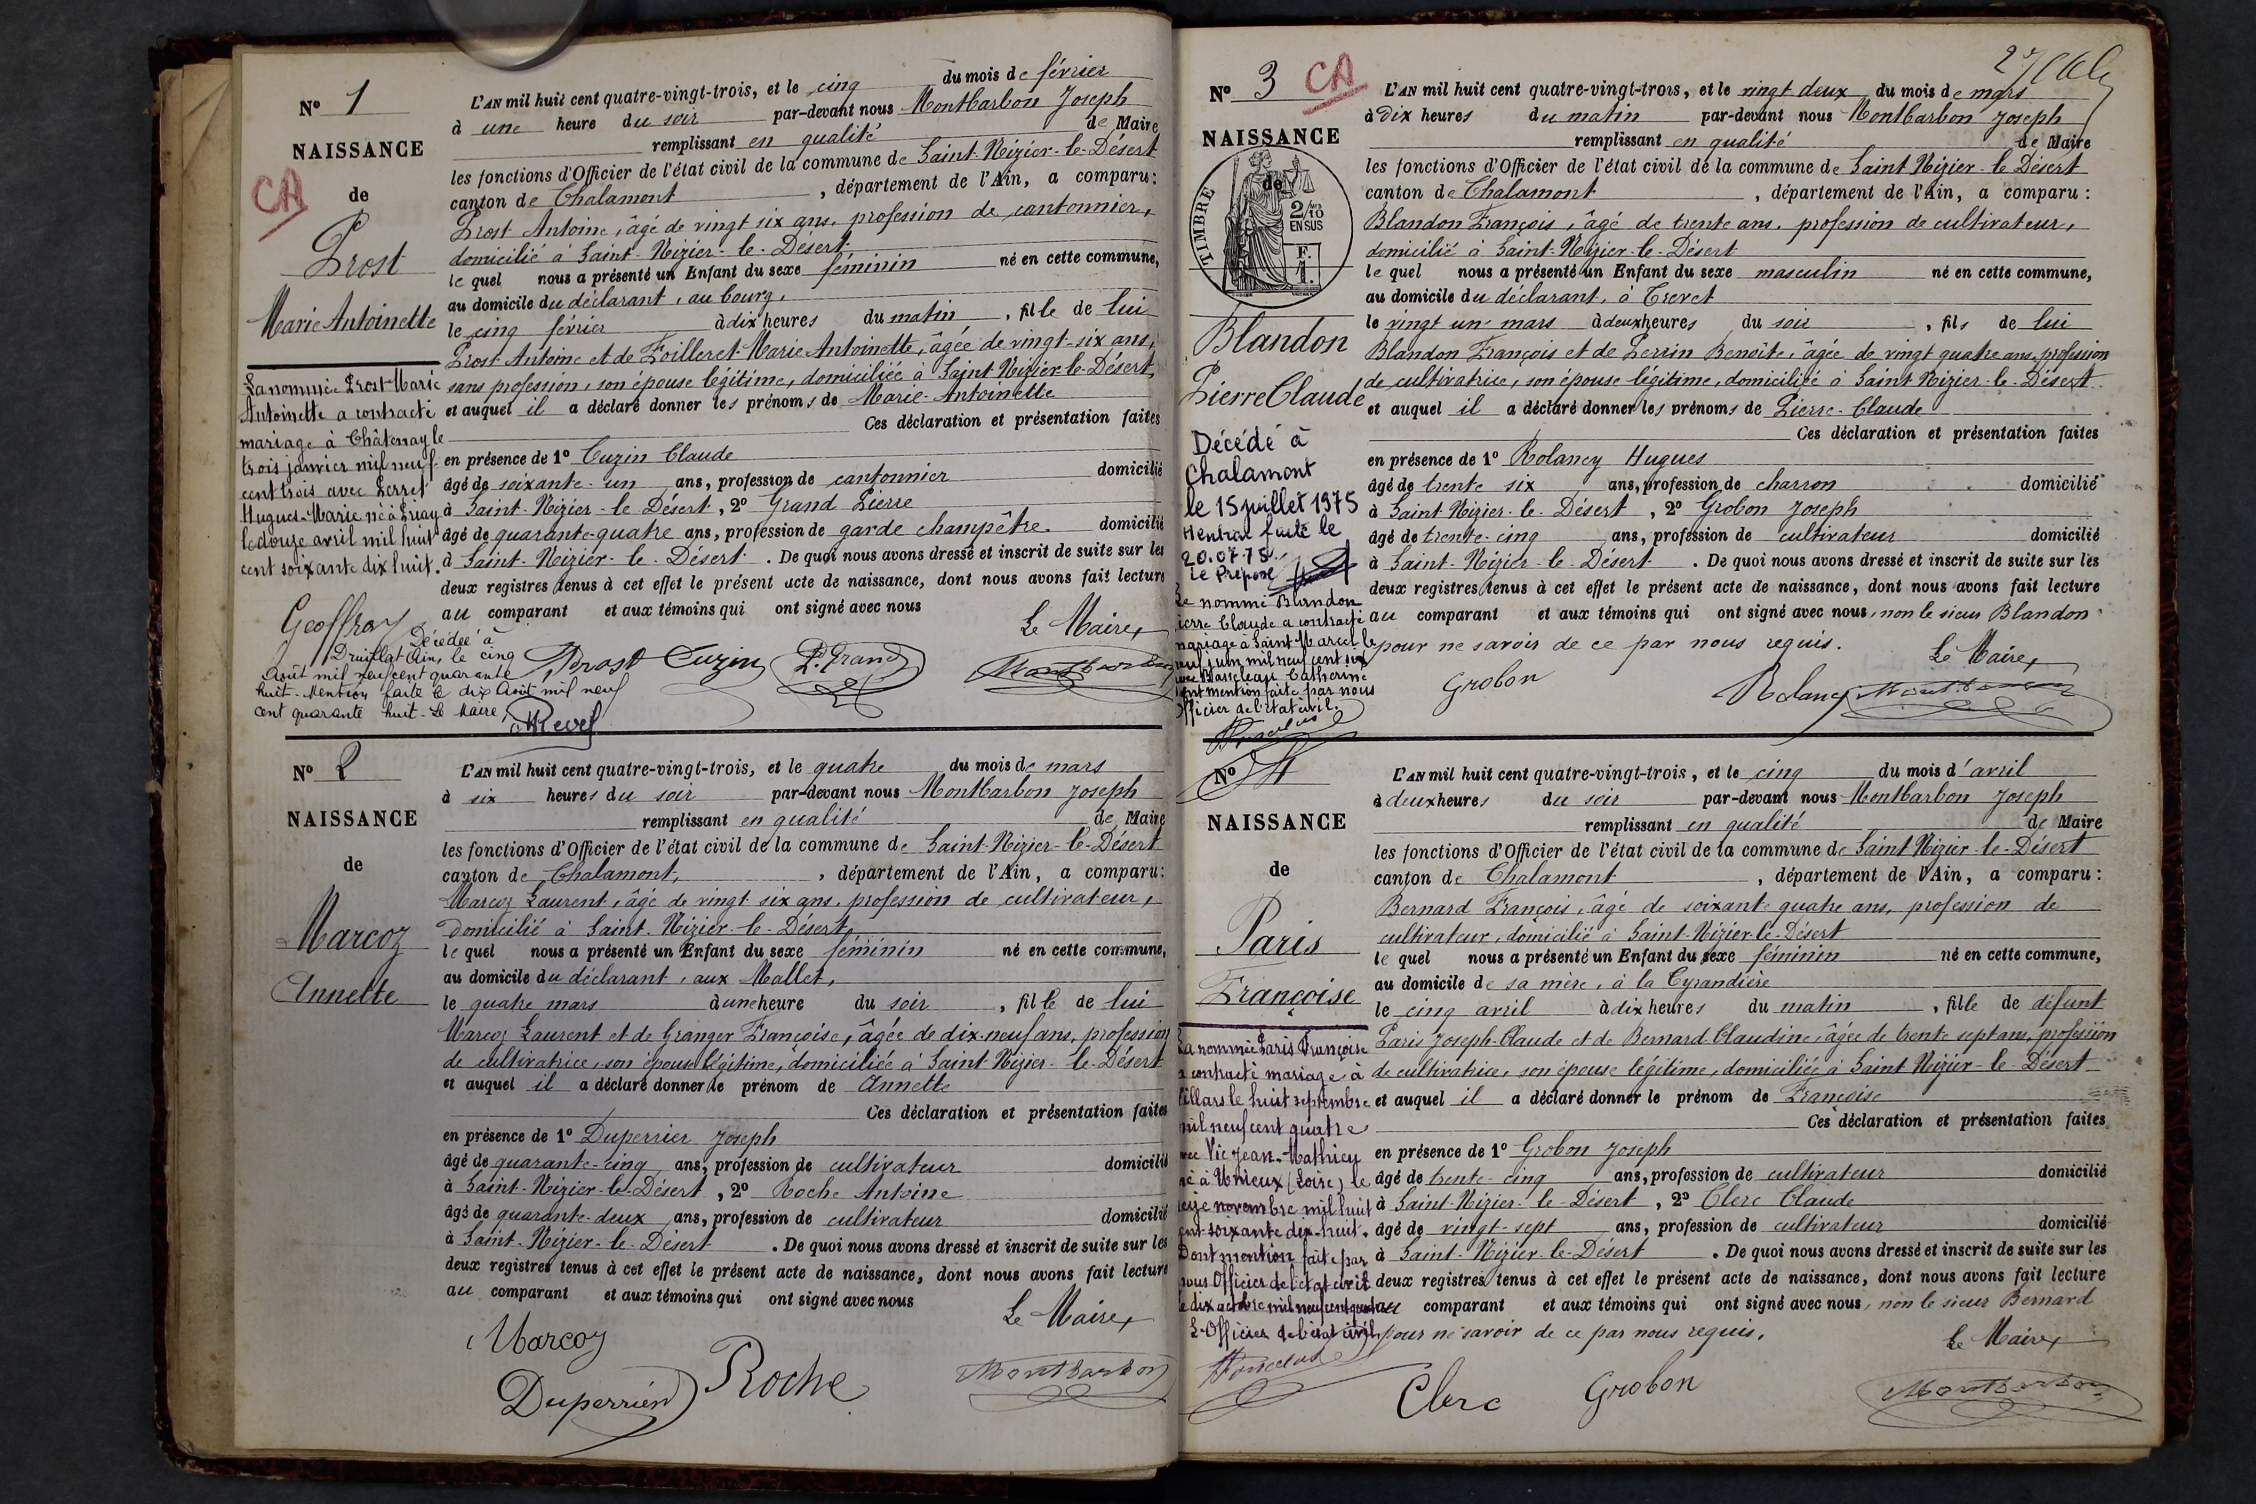 N° 1
NAISSANCE
CA
de
Prost
Marie Antoinette
La nommée Prost Marie
Antoinette a contracté
mariage à Châtenay le
trois janvier mil neuf
cent trois avec Perret
Hugues-Marie né à Priay
le douze avril mil huit
cent soixante dix huit.
Geoffray
Décédée à
Druillat Ain, le cinq
Août mil neuf cent quarante
huit - Mention faite le dix Août mil neuf
cent quarante huit - Le Maire,
Revel
L'AN mil huit cent quatre-vingt-trois, et le cinq du mois de février
à une heure du soir par-devant nous Montbarbon Joseph
remplissant en qualité de Maire
les fonctions d'Officier de l'état civil de la commune de Saint-Nizier-le-Désert
canton de Chalamont, département de l'Ain, a comparu:
Prost Antoine, âgé de vingt six ans, profession de cantonnier,
domicilié à Saint-Nizier-le-Désert.
le quel nous a présenté un Enfant du sexe féminin né en cette commune,
au domicile du déclarant, au bourg,
le cinq février à dix heures du matin, fille de lui
Prost Antoine et de Foilleret Marie Antoinette, âgée de vingt-six ans,
sans profession, son épouse légitime, domiciliée à Saint Nizier-le-Désert,
et auquel il a déclaré donner les prénoms de Marie-Antoinette
Ces déclaration et présentation faites
en présence de 1° Cuzin Claude
âgé de soixante-un ans, profession de cantonnier domicilié
à Saint-Nizier-le-Désert, 2° Grand Pierre
âgé de quarante-quatre ans, profession de garde champêtre. domicilié
à Saint-Nizier-le-Désert. De quoi nous avons dressé et inscrit de suite sur les
deux registres tenus à cet effet le présent acte de naissance, dont nous avons fait lecture
au comparant et aux témoins qui ont signé avec nous
Le Maire,
Prost Cuzin P. Grand Montbarbon
N° 2
NAISSANCE
de
Marcoz
Annette
L'AN mil huit cent quatre-vingt-trois, et le quatre du mois de mars
à six heures du soir par-devant nous Montbarbon Joseph
remplissant en qualité de Maire
les fonctions d'Officier de l'état civil de la commune de Saint-Nizier-le-Désert
canton de Chalamont, département de l'Ain, a comparu:
Marcoz Laurent, âgé de vingt six ans, profession de cultivateur,
domicilié à Saint-Nizier-le-Désert,
le quel nous a présenté un Enfant du sexe féminin né en cette commune,
au domicile du déclarant, aux Mallet,
le quatre mars à une heure du soir, fille de lui
Marcoz Laurent et de Granger Françoise, âgée de dix-neuf ans, profession
de cultivatrice, son épouse légitime, domiciliée à Saint-Nizier-le-Désert
et auquel il a déclaré donner le prénom de Annette
Ces déclaration et présentation faites
en présence de 1° Duperrier Joseph
âgé de quarante-cinq ans, profession de cultivateur domicilié
à Saint-Nizier-le-Désert, 2° Roche Antoine
âgé de quarante-deux ans, profession de cultivateur domicilié
à Saint-Nizier-le-Désert. De quoi nous avons dressé et inscrit de suite sur les
deux registres tenus à cet effet le présent acte de naissance, dont nous avons fait lecture
au comparant et aux témoins qui ont signé avec nous
Le Maire,
Marcoz
Duperrier Roche Montbarbon
N° 3 CA
NAISSANCE
de
TIMBRE
2/10
EN SUS
F.
1.
Blandon
Pierre Claude
Décédé à
Chalamont
le 15 juillet 1975
Mention faite le
20.07.75.
Le Préposé
Le nommé Blandon
Pierre Claude a contracté
mariage à Saint Marcel le
neuf juin mil neuf cent six
Catherine
dont mention faite par nous
Officier de l'état civil.
L'AN mil huit cent quatre-vingt-trois, et le vingt deux du mois de mars
à dix heures du matin par-devant nous Montbarbon Joseph
remplissant en qualité de Maire
les fonctions d'Officier de l'état civil de la commune de Saint Nizier-le-Désert
canton de Chalamont, département de l'Ain, a comparu:
Blandon François, âgé de trente ans, profession de cultivateur,
domicilié à Saint-Nizier-le-Désert
le quel nous a présenté un Enfant du sexe masculin né en cette commune,
au domicile du déclarant, à Crevet
le vingt un mars à deux heures du soir, fils de lui
Blandon François et de Perrin Benoîte, âgée de vingt quatre ans, profession
de cultivatrice, son épouse légitime, domiciliée à Saint Nizier-le-Désert.
et auquel il a déclaré donner les prénoms de Pierre-Claude
Ces déclaration et présentation faites
en présence de 1° Rolancy Hugues
âgé de trente six ans, profession de charron domicilié
à Saint Nizier-le-Désert, 2° Grobon Joseph
âgé de trente-cinq ans, profession de cultivateur domicilié
à Saint-Nizier-le-Désert. De quoi nous avons dressé et inscrit de suite sur les
deux registres tenus à cet effet le présent acte de naissance, dont nous avons fait lecture
au comparant et aux témoins qui ont signé avec nous, non le sieur Blandon
pour ne savoir de ce par nous requis.
Le Maire,
Grobon Rolancy Montbarbon
N° 4
NAISSANCE
de
Paris
Françoise
La nommée Paris Françoise
a contracté mariage à
Villars le huit septembre
mil neuf cent quatre
avec Vic Jean-Mathieu
né à Unieux (Loire) le
novembre mil huit
cent soixante dix-huit.
Dont mention faite par
nous Officier de l'état civil
le dix octobre mil neuf cent quatre
L'Officier de l'état civil,
L'AN mil huit cent quatre-vingt-trois, et le cinq du mois d'avril
à deux heures du soir par-devant nous Montbarbon Joseph
remplissant en qualité de Maire
les fonctions d'Officier de l'état civil de la commune de Saint Nizier-le-Désert
canton de Chalamont, département de l'Ain, a comparu:
Bernard François, âgé de soixante quatre ans, profession de
cultivateur, domicilié à Saint-Nizier-le-Désert
le quel nous a présenté un Enfant du sexe féminin né en cette commune,
au domicile de sa mère, à la Tyrandière
le cinq avril à dix heures du matin, fille de défunt
Paris Joseph-Claude et de Bernard Claudine, âgée de trente sept ans, profession
de cultivatrice, son épouse légitime, domiciliée à Saint Nizier-le-Désert
et auquel il a déclaré donner le prénom de Françoise
Ces déclaration et présentation faites
en présence de 1° Grobon Joseph
âgé de trente-cinq ans, profession de cultivateur domicilié
à Saint-Nizier-le-Désert, 2° Clerc Claude
âgé de vingt-sept ans, profession de cultivateur domicilié
à Saint-Nizier-le-Désert. De quoi nous avons dressé et inscrit de suite sur les
deux registres tenus à cet effet le présent acte de naissance, dont nous avons fait lecture
au comparant et aux témoins qui ont signé avec nous, non le sieur Bernard
pour ne savoir de ce par nous requis.
Le Maire,
Clerc Grobon Montbarbon